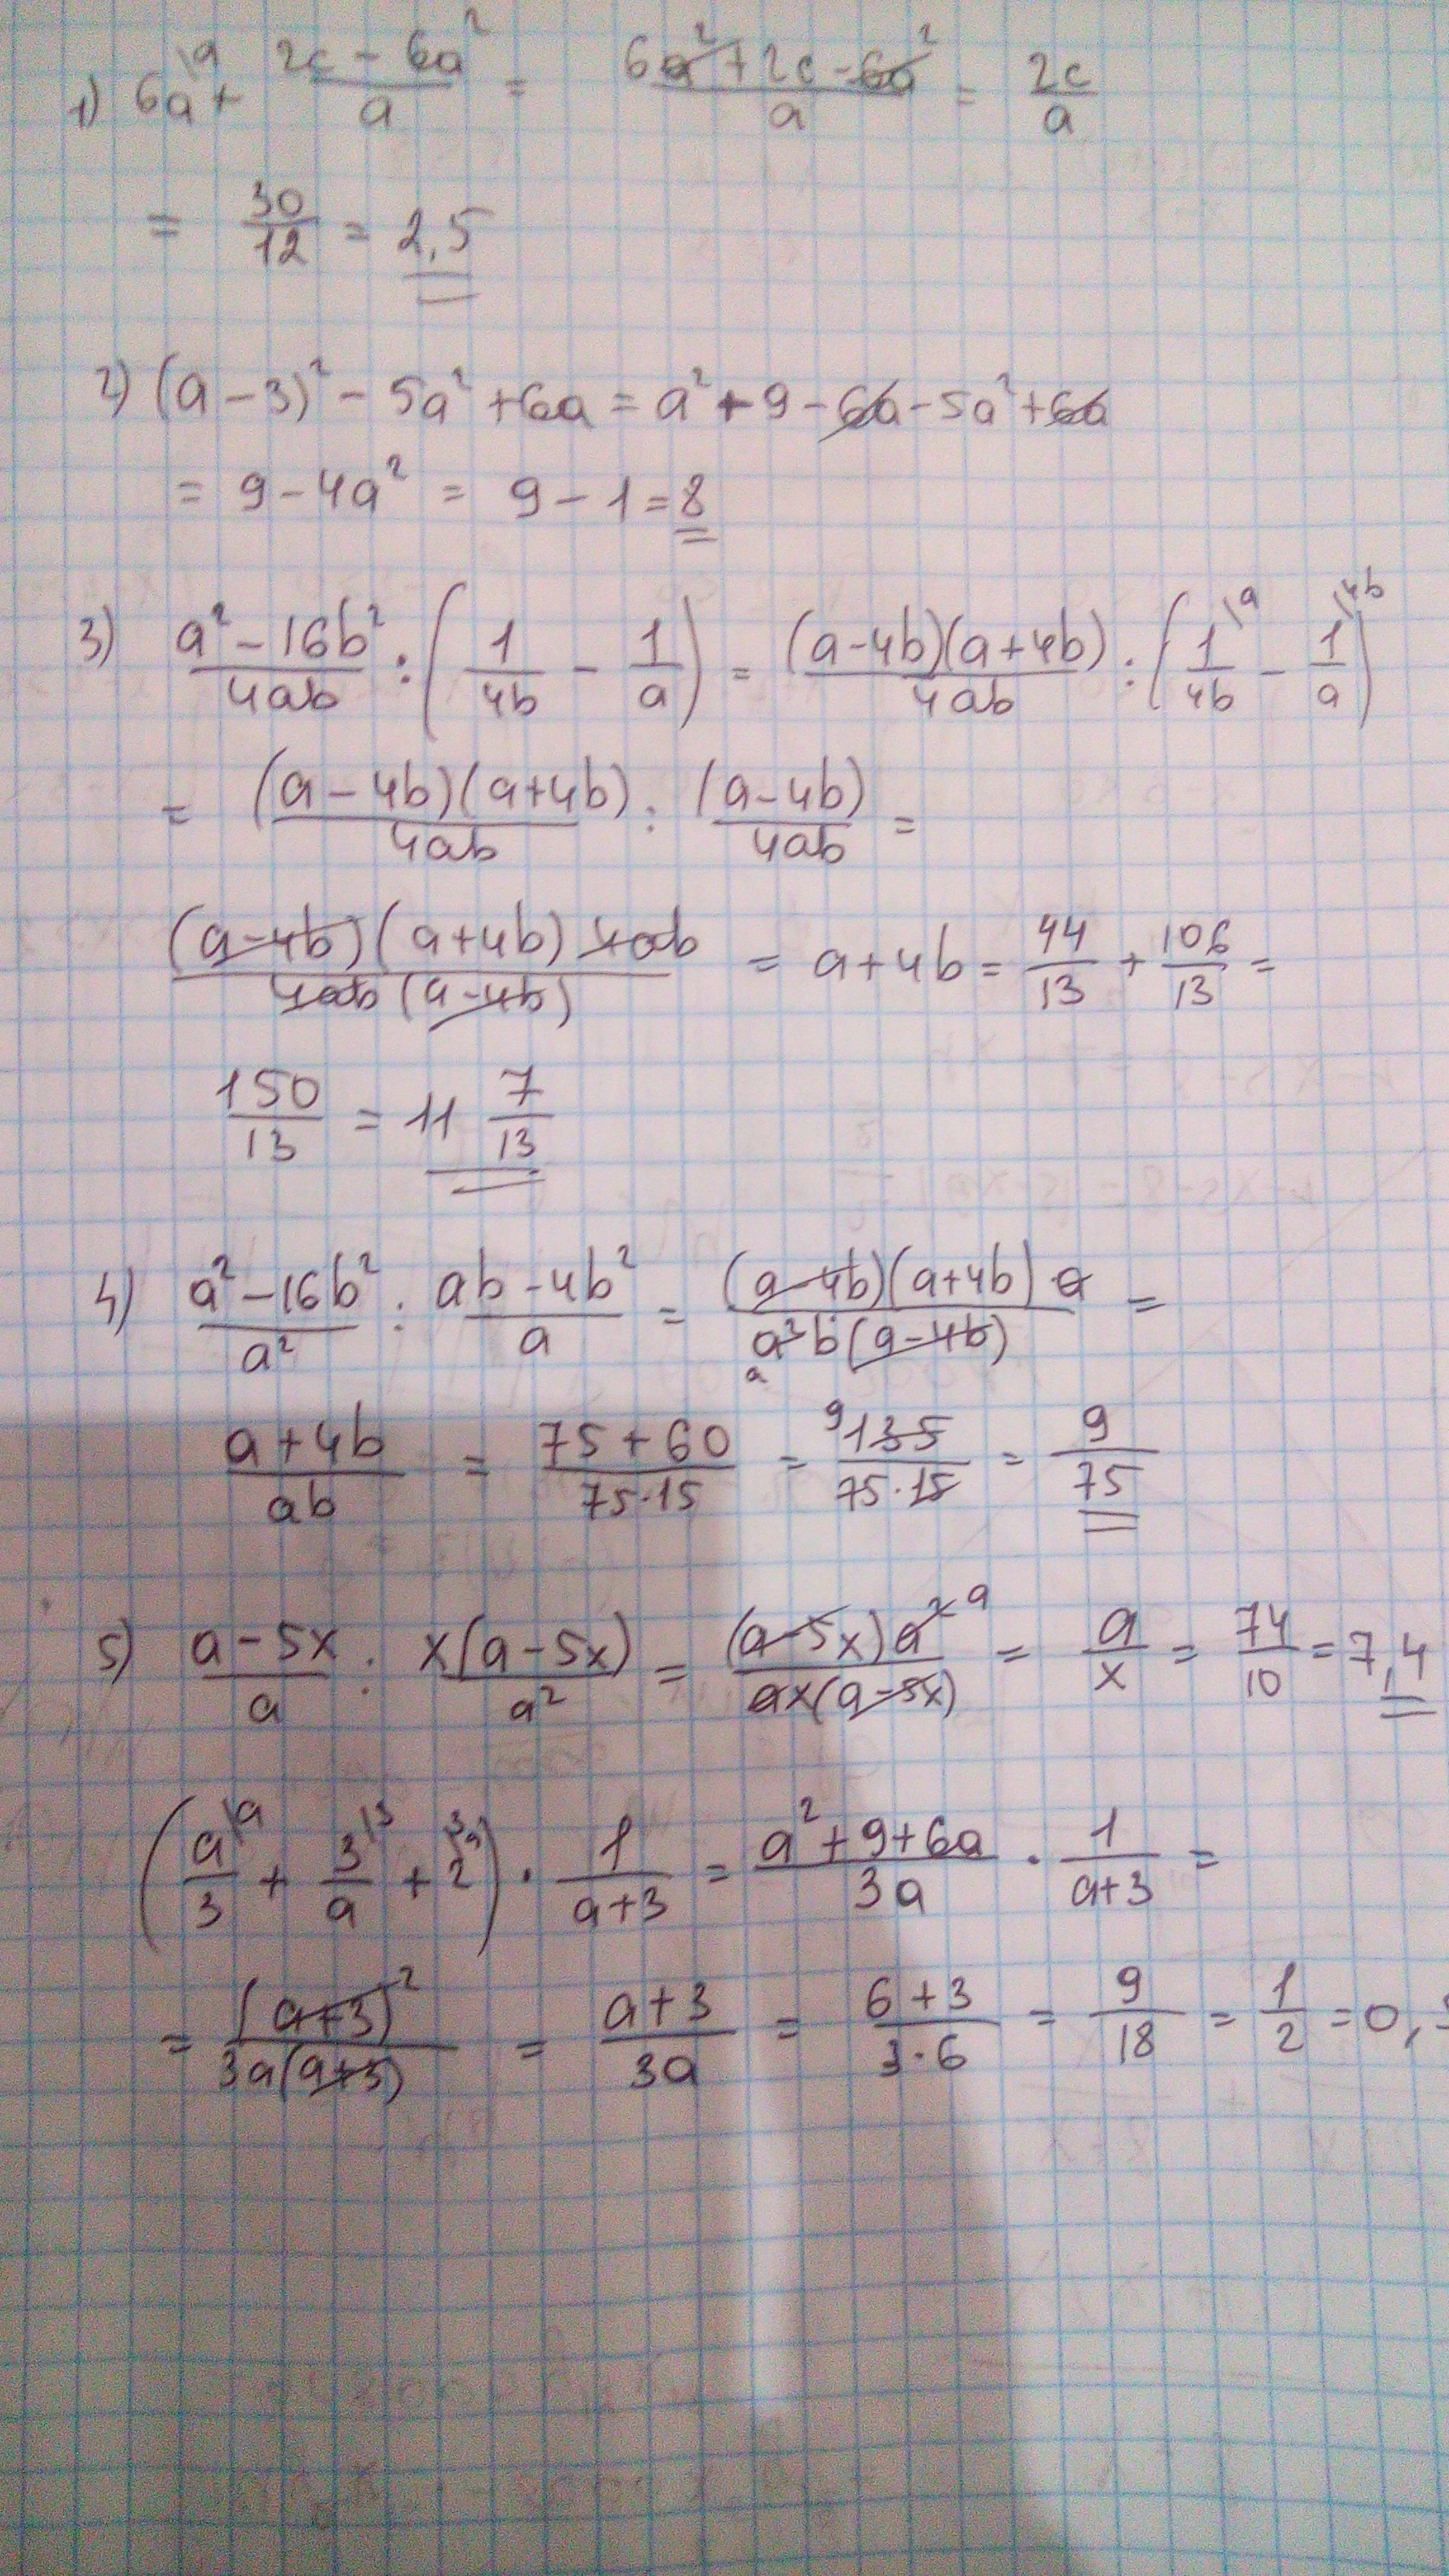 1) 6a\a + (2c - 6a²)/a = (6a² + 2c - 6a²)/a = 2c/a
= 30/12 = 2,5
2) (a - 3)² - 5a² + 6a = a² + 9 - 6a - 5a² + 6a
= 9 - 4a² = 9 - 1 = 8
3) (a² - 16b²)/4ab : (1/4b - 1/a) = (a - 4b)(a + 4b)/4ab : (1/4b\a - 1/a\4b)
= (a - 4b)(a + 4b)/4ab : (a - 4b)/4ab =
(a - 4b)(a + 4b) 4ab/4ab (a - 4b) = a + 4b = 44/13 + 106/13 =
150/13 = 11 7/13
4) (a² - 16b²)/a² : (ab - 4b²)/a = (a - 4b)(a + 4b) a/a² b (a - 4b) =
a
(a + 4b)/ab = (75 + 60)/75·15 = 9 135/75·15 = 9/75
5) (a - 5x)/a : x(a - 5x)/a² = (a - 5x) a² a/ax(a - 5x) = a/x = 74/10 = 7,4
(a/3\a + 3/a\3 + 2\3a) · 1/(a + 3) = (a² + 9 + 6a)/3a · 1/(a + 3) =
= (a + 3)²/3a(a + 3) = (a + 3)/3a = (6 + 3)/3·6 = 9/18 = 1/2 = 0,